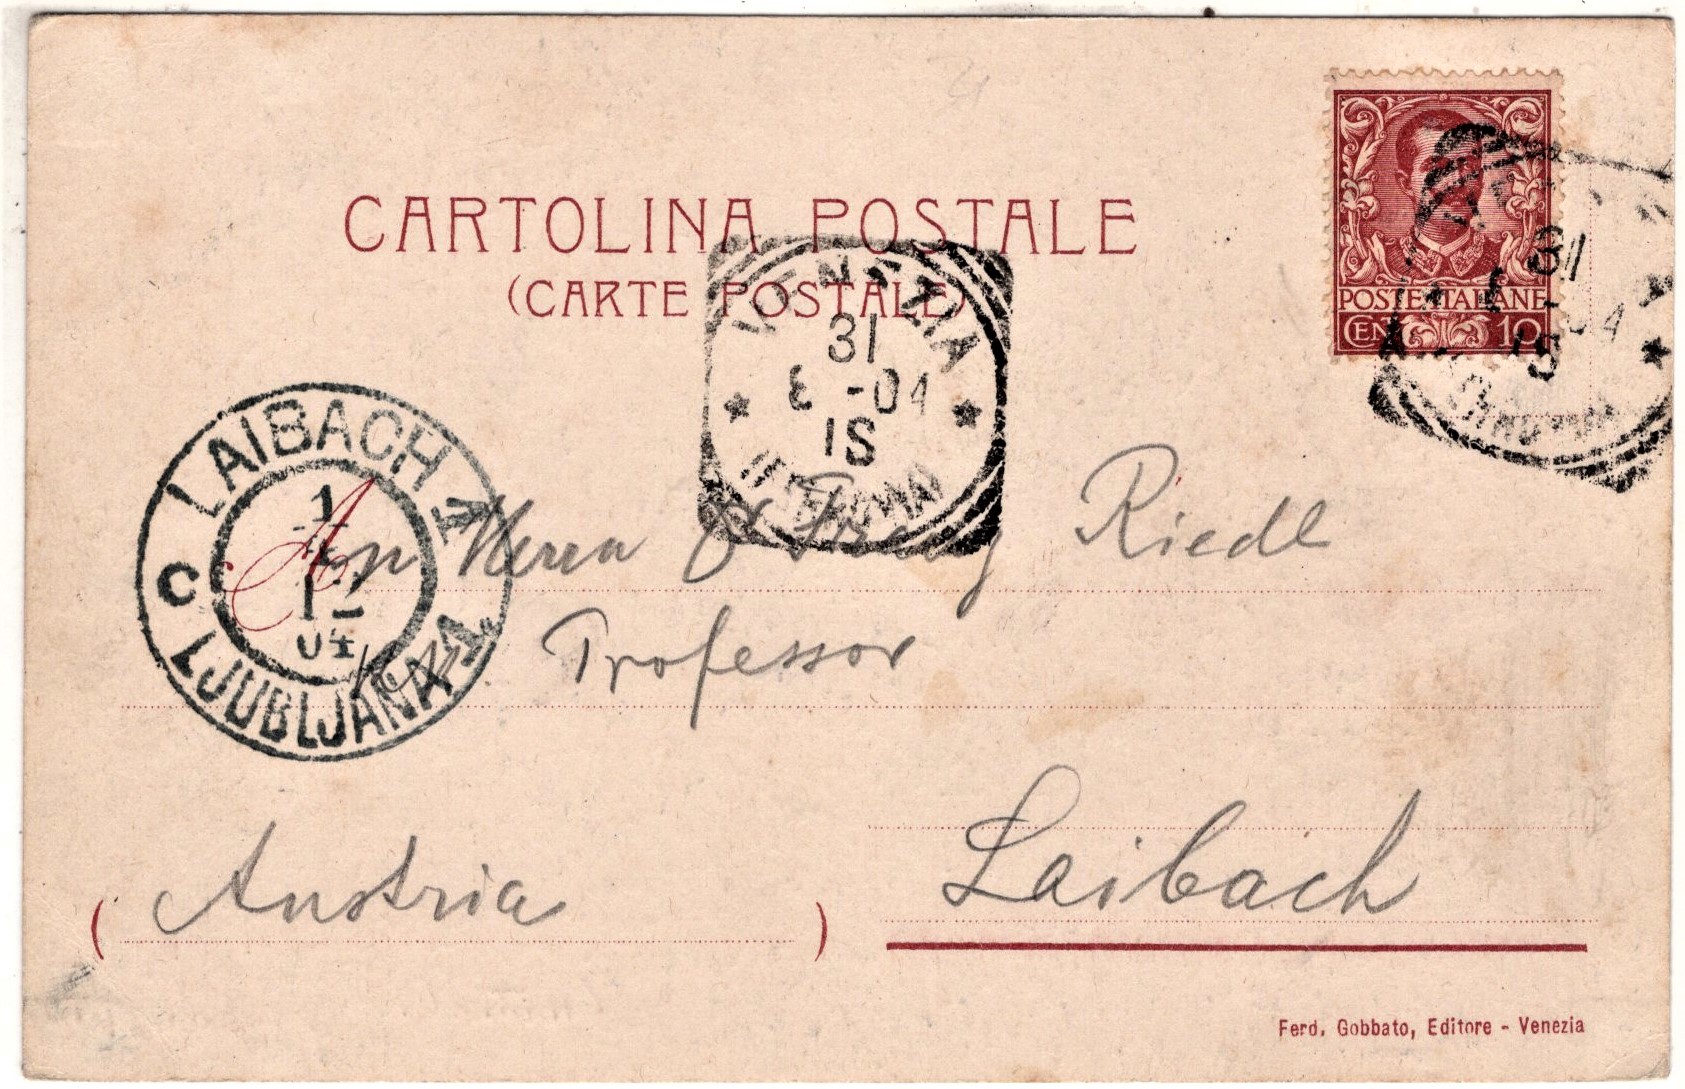 CARTOLINA POSTALE
(CARTE POSTALE)
POSTE ITALIANE
CEN. 10
31
-04
VENEZIA
31
8 -04
1S
(FERROVIA)
LAIBACH
1
C
04
LJUBLJANA
An Herrn & Frau Riedl
Professor
Laibach
(Austria)
Ferd. Gobbato, Editore - Venezia